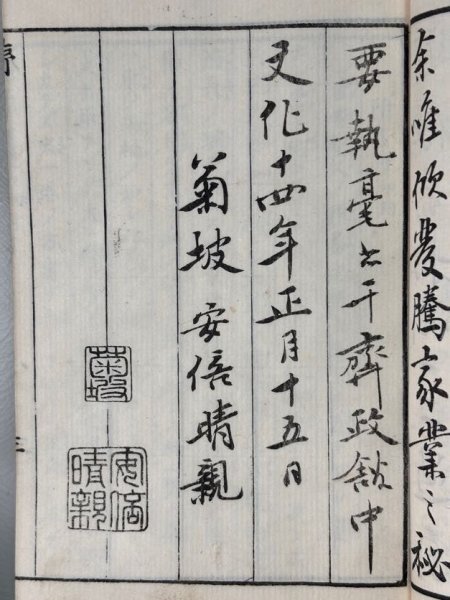 余唯欣騰家業之秘
要執毫書于齊政館中
文化十四年正月十五日
菊坡 安倍晴親
菊坡
安倍
晴親
序
三